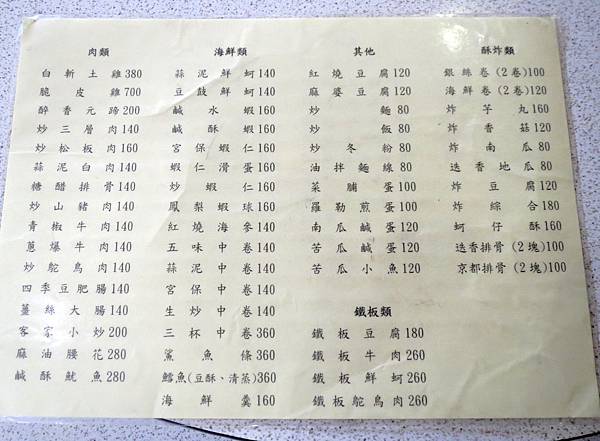 肉類
白斬土雞380
脆皮雞700
醉香元蹄200
炒三層肉140
炒松板肉160
蒜泥白肉140
糖醋排骨140
炒山豬肉140
青椒牛肉140
蔥爆牛肉140
炒鴕鳥肉140
四季豆肥腸140
薑絲大腸140
客家小炒200
麻油腰花280
鹹酥魷魚280
海鮮類
蒜泥鮮蚵140
豆鼓鮮蚵140
鹹水蝦160
鹹酥蝦160
宮保蝦仁160
蝦仁滑蛋160
炒蝦仁160
鳳梨蝦球160
紅燒海參140
五味中卷140
蒜泥中卷140
宮保中卷140
生炒中卷140
三杯中卷360
鯊魚條360
鱈魚(豆酥、清蒸)360
海鮮羹160
其他
紅燒豆腐120
麻婆豆腐120
炒麵80
炒飯80
炒冬粉80
油拌麵線80
菜脯蛋100
羅勒煎蛋100
南瓜鹹蛋120
苦瓜鹹蛋120
苦瓜小魚120
鐵板類
鐵板豆腐180
鐵板牛肉260
鐵板鮮蚵260
鐵板鴕鳥肉260
酥炸類
銀絲卷(2卷)100
海鮮卷(2卷)120
炸芋丸160
炸香菇120
炸南瓜80
迭香地瓜80
炸豆腐120
炸綜合180
蚵仔酥160
迭香排骨(2塊)100
京都排骨(2塊)100